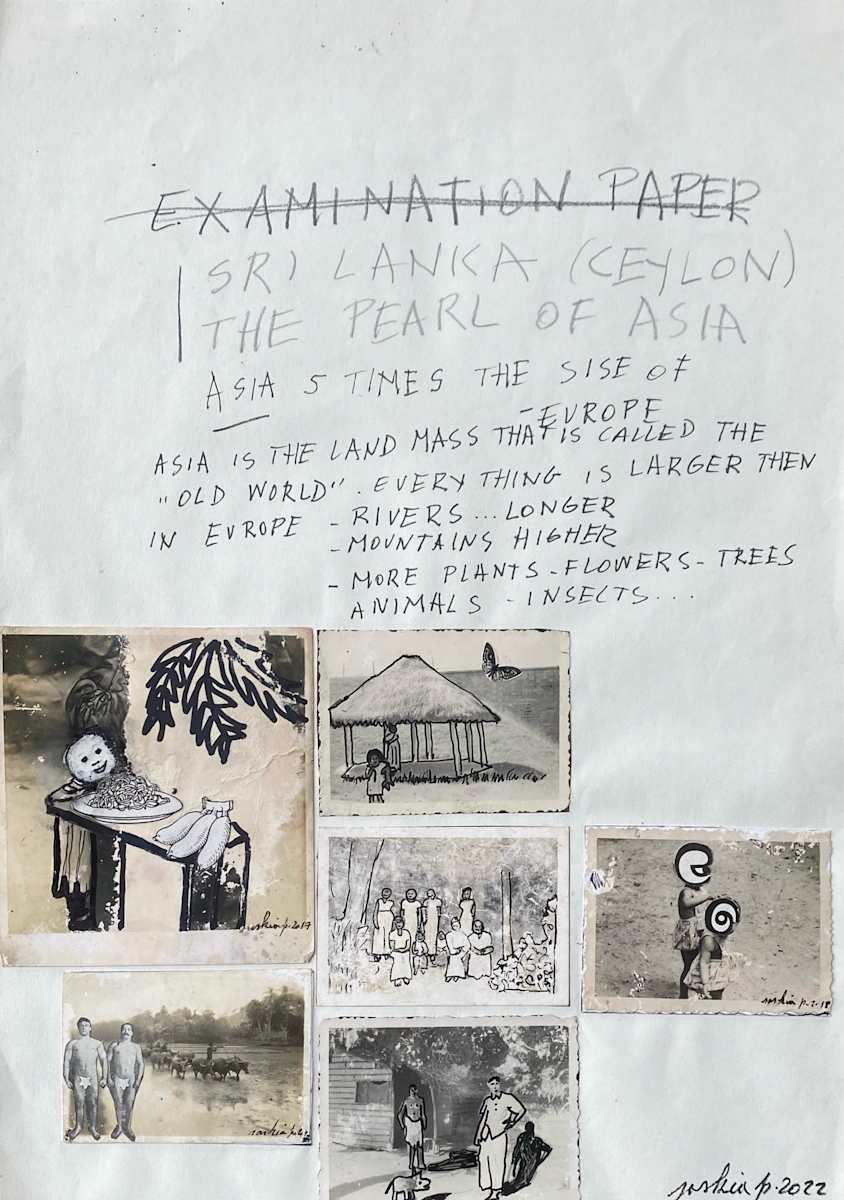 EXAMINATION PAPER
SRI LANKA (CEYLON)
THE PEARL OF ASIA
ASIA 5 TIMES THE SISE OF
- EUROPE
ASIA IS THE LAND MASS THAT IS CALLED THE
"OLD WORLD". EVERY THING IS LARGER THEN
IN EUROPE - RIVERS... LONGER
- MOUNTAINS HIGHER
- MORE PLANTS - FLOWERS - TREES
ANIMALS - INSECTS...
saskia p. 2017
saskia p.
saskia p.
saskia p. 2022